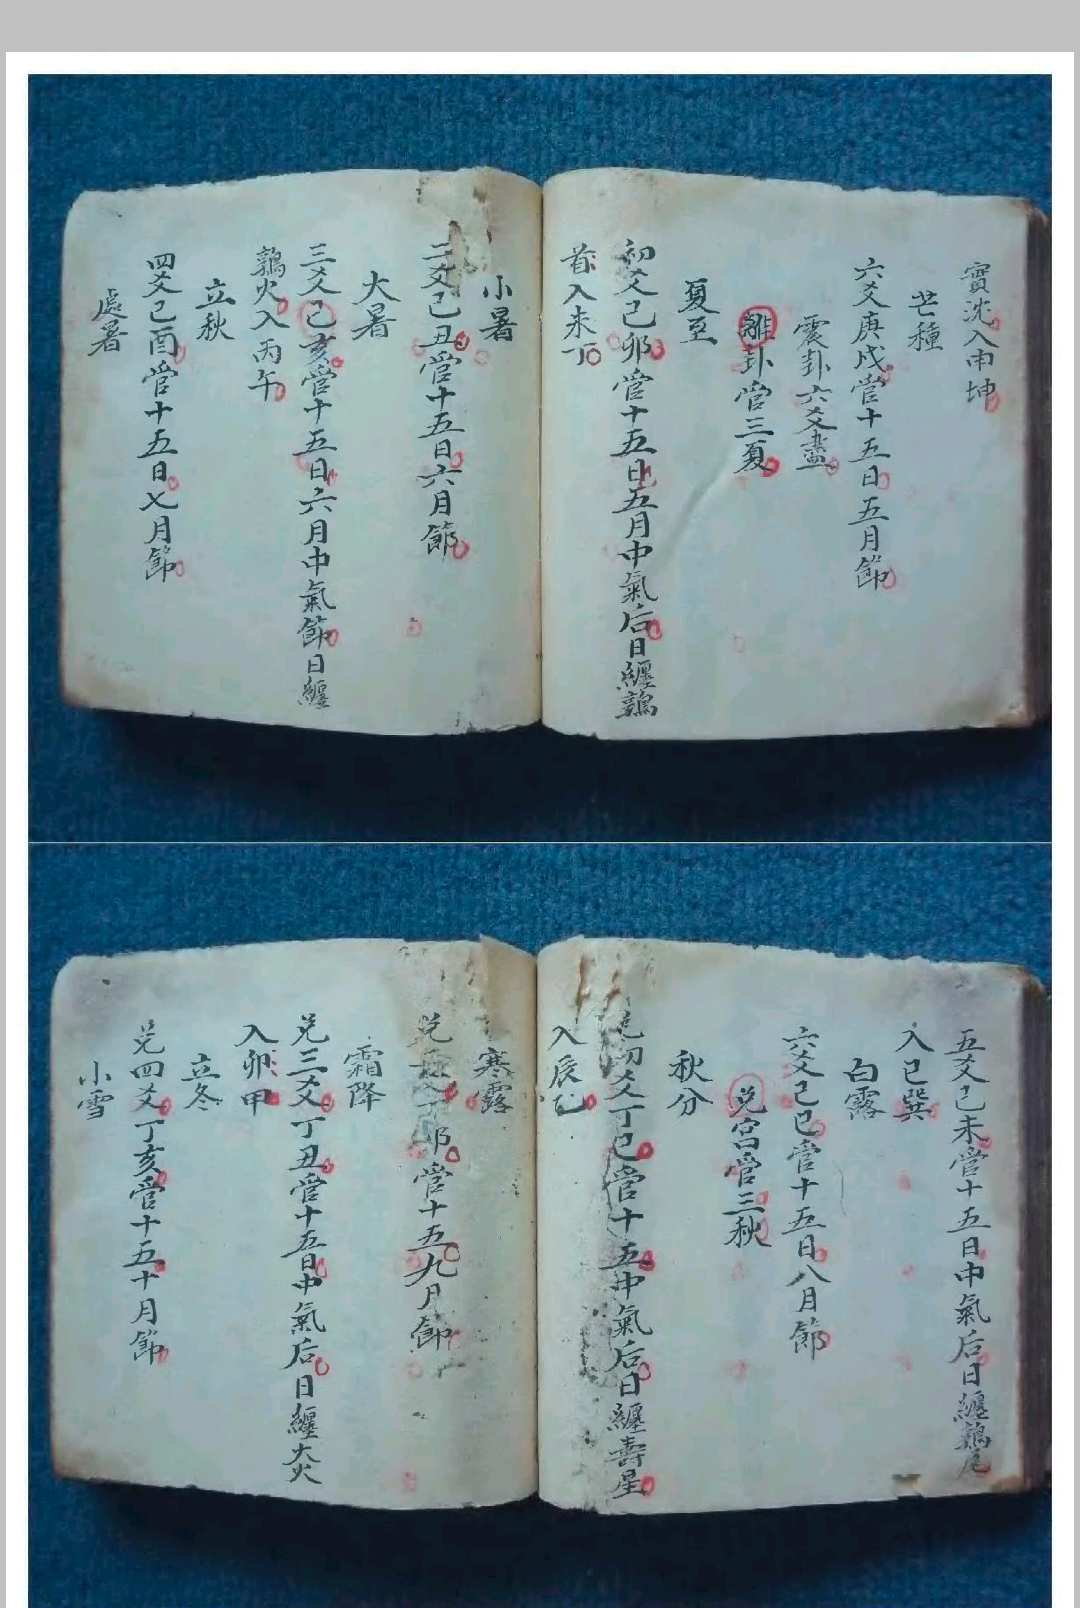 實沈入申坤
芒種
六爻庚戌管十五日五月節
震卦六爻盡
離卦管三夏
夏至
初爻己卯管十五日五月中氣后日纏鶉
首入未丁
小暑
二爻己丑管十五日六月節
大暑
三爻己亥管十五日六月中氣節日纏
鶉火入丙午
立秋
四爻己酉管十五日七月節
處暑
五爻己未管十五日中氣后日纏鶉尾
入巳巽
白露
六爻己巳管十五日八月節
兑宮管三秋
秋分
兑初爻丁巳管十五中氣后日纏壽星
入辰乙
寒露
兑二爻丁卯管十五九月節
霜降
兑三爻丁丑管十五日中氣后日纏大火
入卯甲
立冬
兑四爻丁亥管十五十月節
小雪